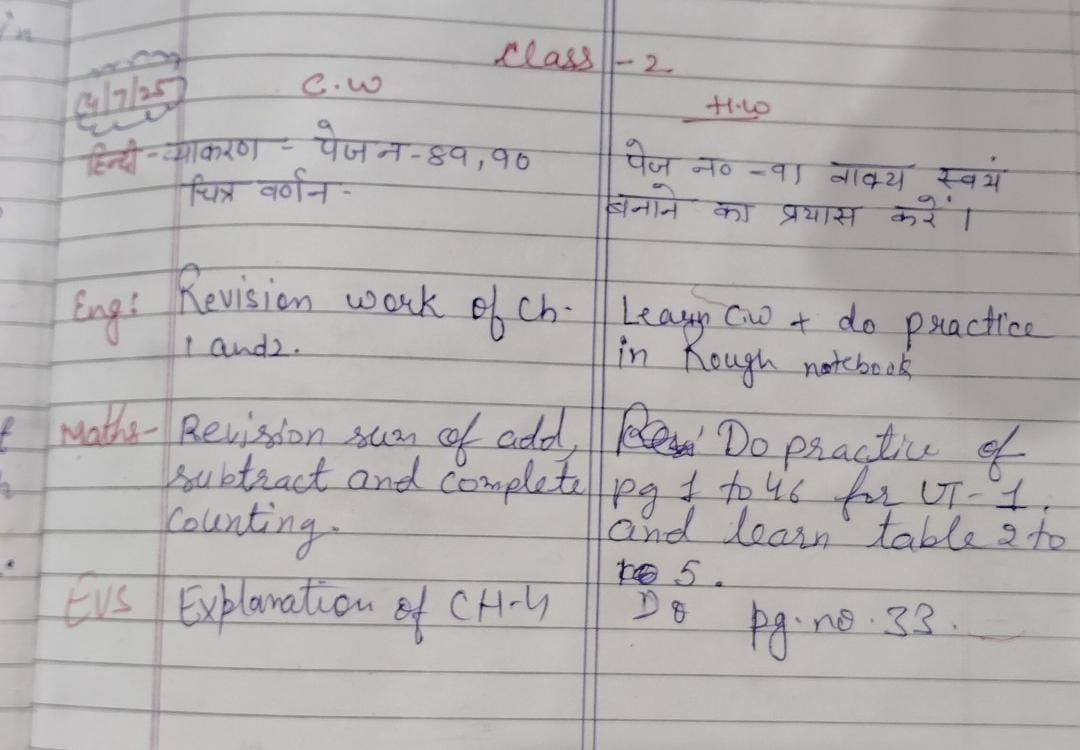 Class - 2
4/7/25
C.W
H.W
हिन्दी - व्याकरण - पेज न - ८९, ९०
चित्र वर्णन -
पेज न० - ९१ वाक्य स्वयं
बनाने का प्रयास करें ।
Eng: Revision work of Ch-
1 and 2.
Learn C.W + do practice
in Rough notebook
Maths - Revision sum of add,
subtract and complete
counting.
Do practice of
pg 1 to 46 for UT-1.
and learn table 2 to
5.
EVS Explanation of CH-4
Do pg. no. 33.